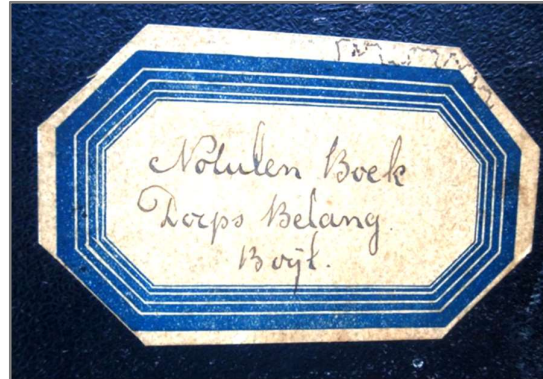 Notulen Boek
Dorps Belang.
Boijl.